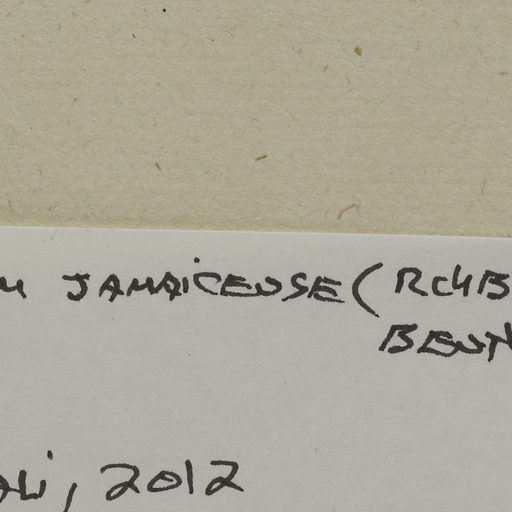 M JAMAICENSE (RCHB
BENT
, 2012